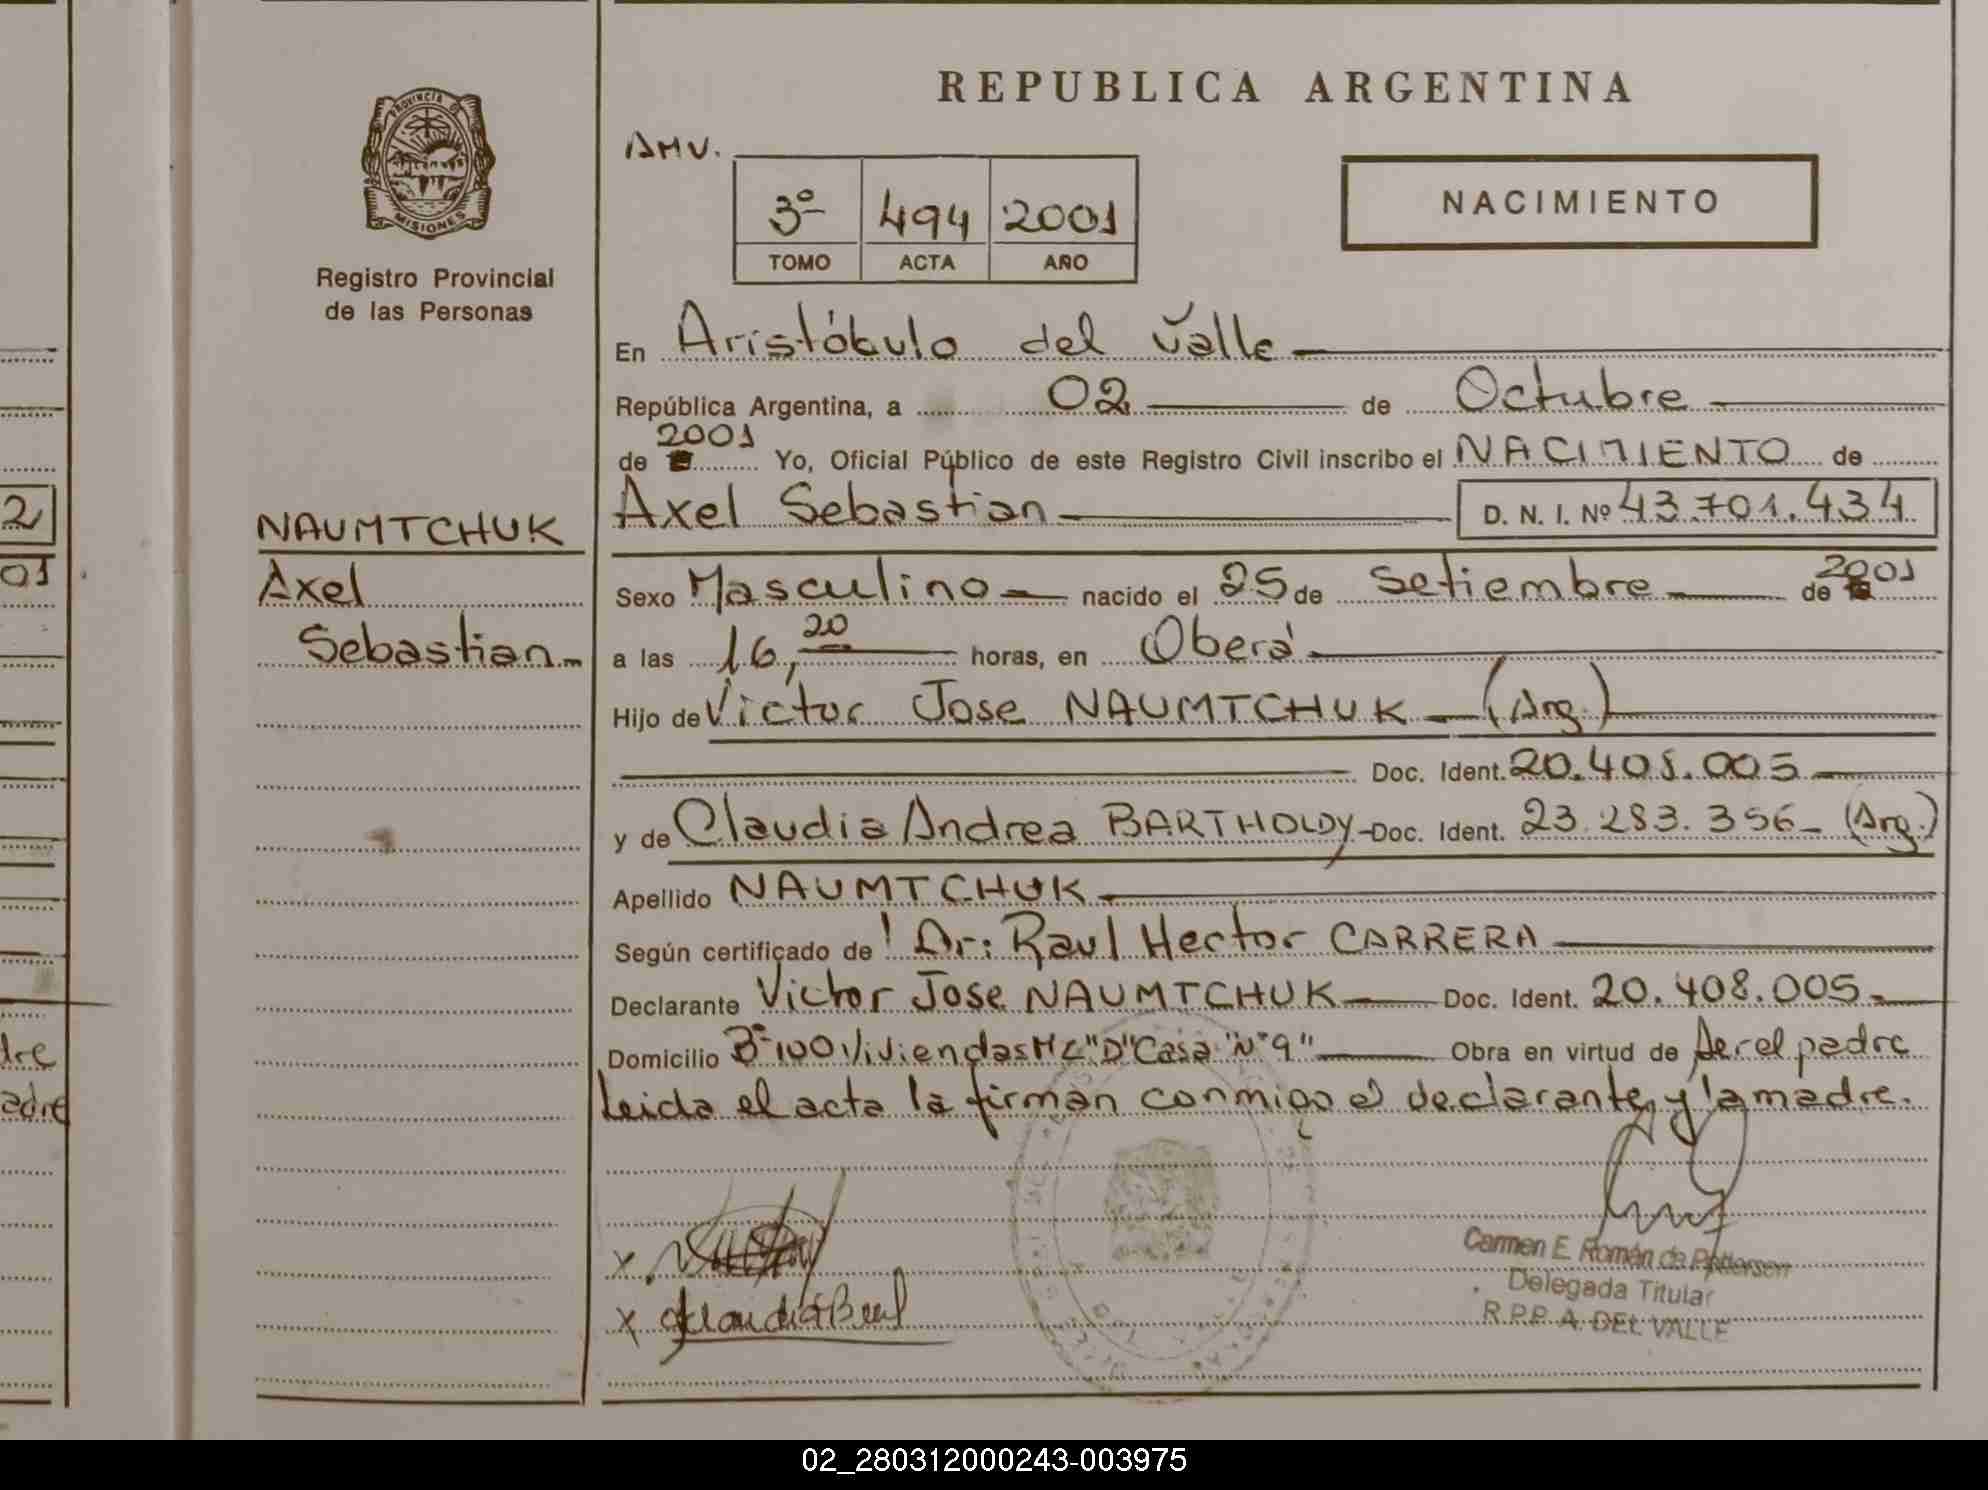 REPUBLICA ARGENTINA
PROVINCIA D
MISIONES
Registro Provincial
de las Personas
AMV.
3º 494 2001
TOMO ACTA AÑO
NACIMIENTO
En Aristóbulo del Valle
República Argentina, a 02 de Octubre
de 2001 Yo, Oficial Público de este Registro Civil inscribo el NACIMIENTO de
Axel Sebastian D. N. I. Nº 43.701.434
NAUMTCHUK
Axel
Sebastian
Sexo Masculino nacido el 25 de Setiembre de 2001
a las 16,20 horas, en Oberá
Hijo de Victor Jose NAUMTCHUK (Arg.)
Doc. Ident. 20.408.005
y de Claudia Andrea BARTHOLDY Doc. Ident. 23.283.356 (Arg.)
Apellido NAUMTCHUK
Según certificado de Dr: Raul Hector CARRERA
Declarante Victor Jose NAUMTCHUK Doc. Ident. 20.408.005
Domicilio Bº 100 Viviendas "D" Casa "Nº 9" Obra en virtud de Ser el padre
Leida el acta la firman conmigo el declarante y la madre.
Carmen E. Román de
Delegada Titular
R.P.P. A. DEL VALLE
2
01
dre
adre
02_280312000243-003975